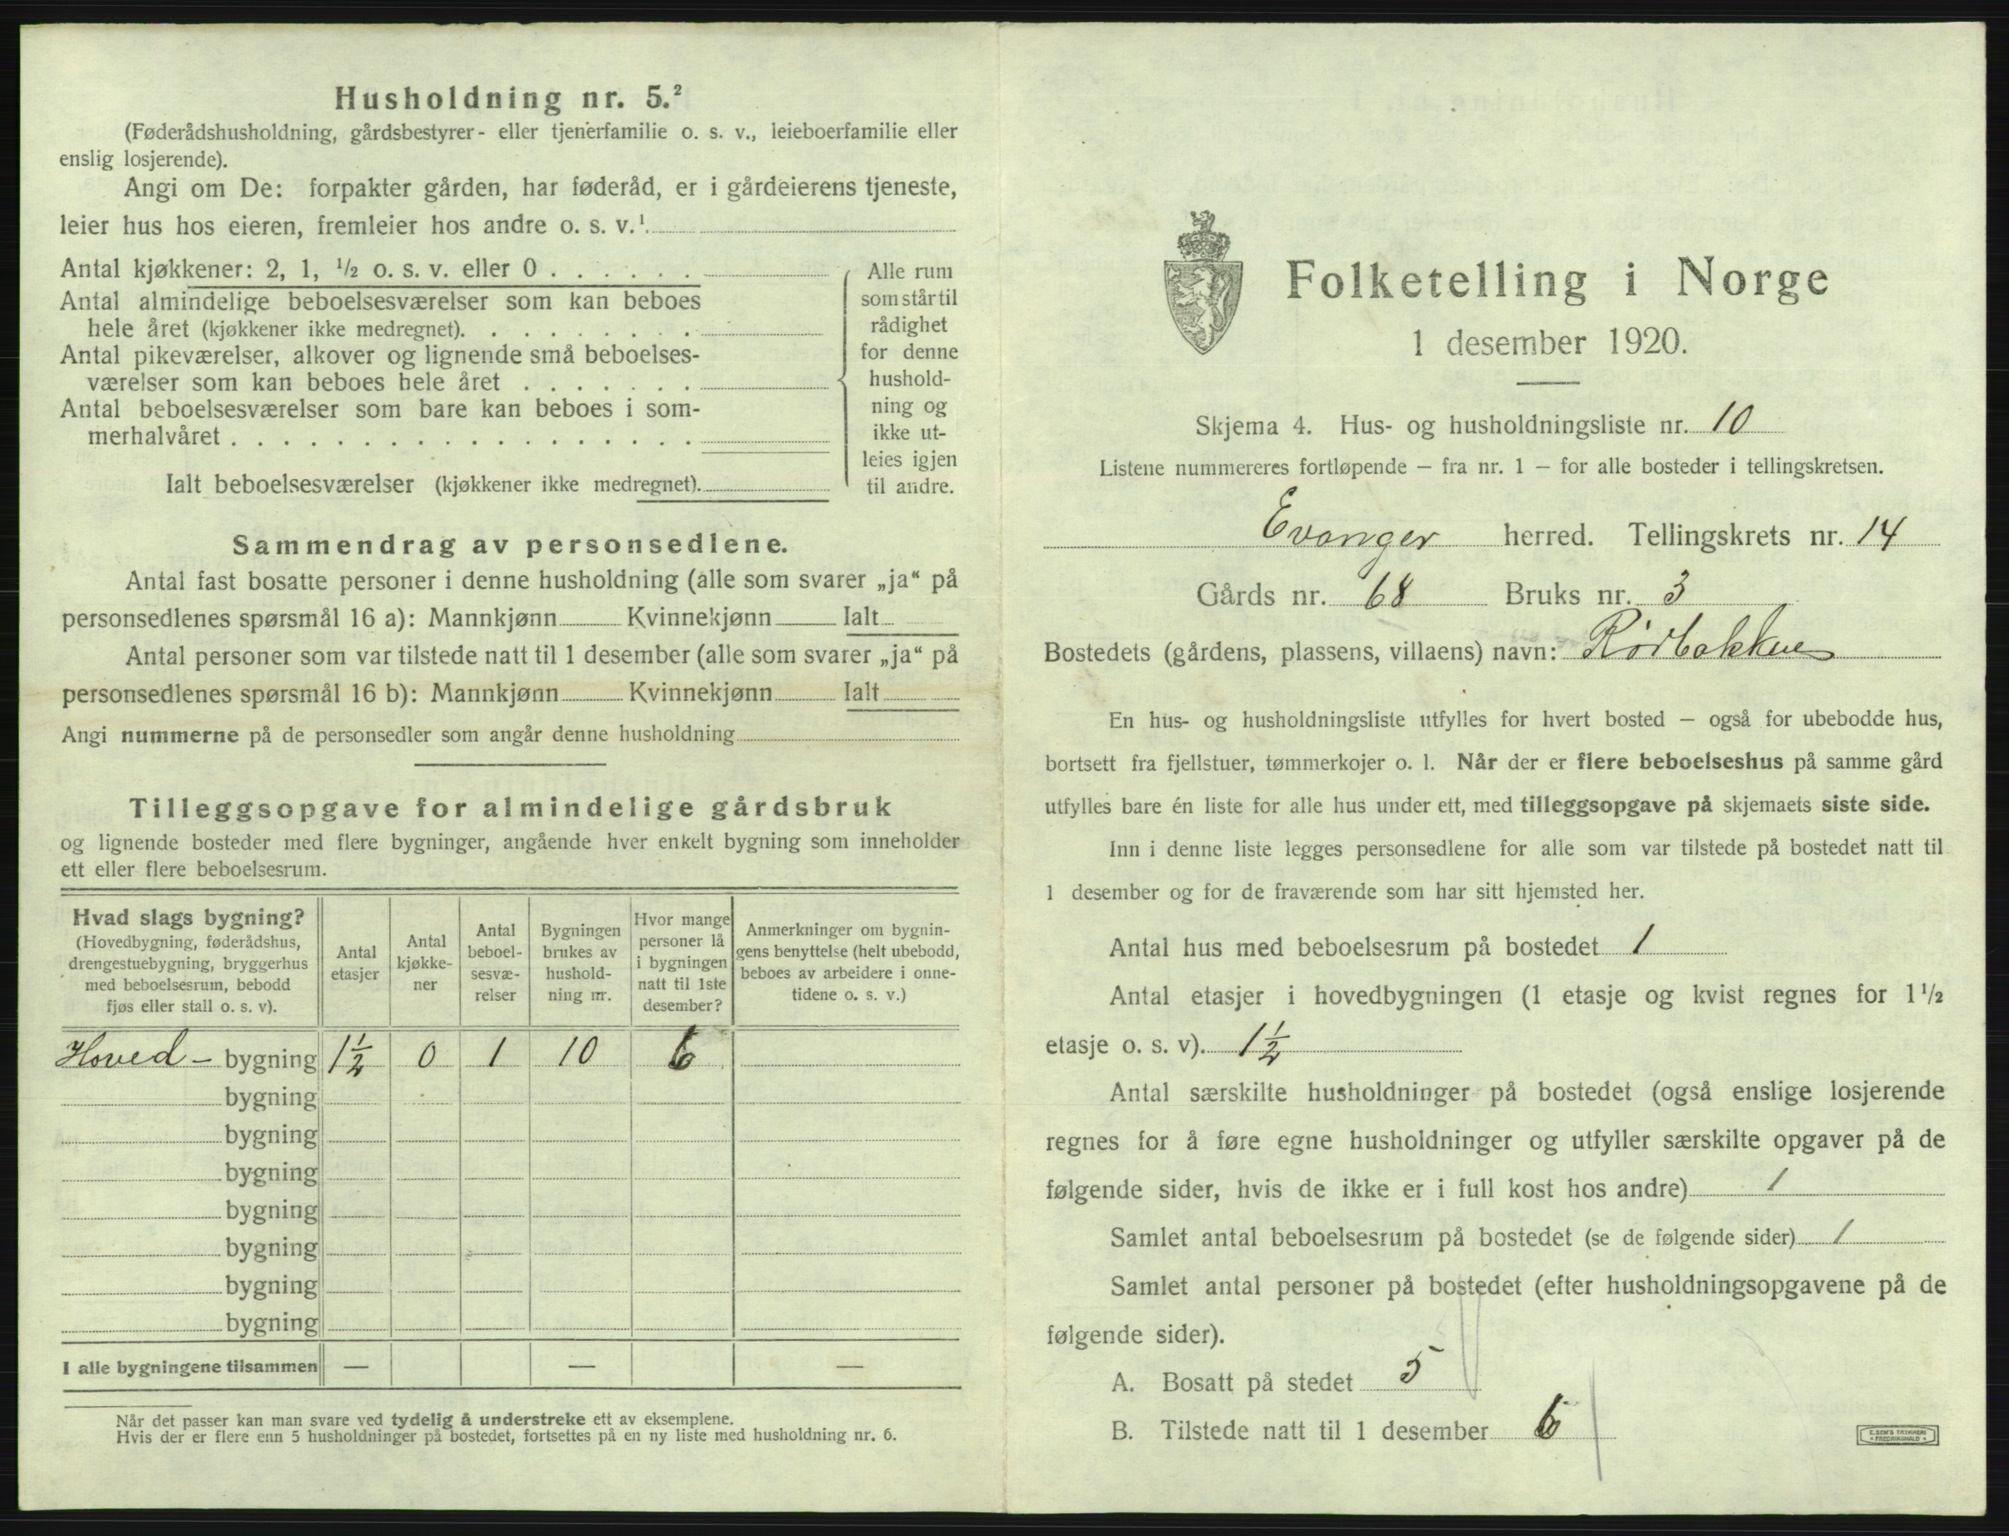 Husholdning nr. 5.²
(Føderådshusholdning, gårdsbestyrer- eller tjenerfamilie o. s. v., leieboerfamilie eller
enslig losjerende).
Angi om De: forpakter gården, har føderåd, er i gårdeierens tjeneste,
leier hus hos eieren, fremleier hos andre o. s. v.¹
Antal kjøkkener: 2, 1, ½ o. s. v. eller 0 . . . . . .
Antal almindelige beboelsesværelser som kan beboes
hele året (kjøkkener ikke medregnet). . . . . . . . .
Antal pikeværelser, alkover og lignende små beboelses-
værelser som kan beboes hele året . . . . . . .
Antal beboelsesværelser som bare kan beboes i som-
merhalvåret . . . . . . . . . . . . . . . . . .
Ialt beboelsesværelser (kjøkkener ikke medregnet).
Alle rum
som står til
rådighet
for denne
hushold-
ning og
ikke ut-
leies igjen
til andre.
Sammendrag av personsedlene.
Antal fast bosatte personer i denne husholdning (alle som svarer „ja“ på
personsedlenes spørsmål 16 a): Mannkjønn Kvinnekjønn Ialt
Antal personer som var tilstede natt til 1 desember (alle som svarer „ja“ på
personsedlenes spørsmål 16 b): Mannkjønn Kvinnekjønn Ialt
Angi nummerne på de personsedler som angår denne husholdning
Tilleggsopgave for almindelige gårdsbruk
og lignende bosteder med flere bygninger, angående hver enkelt bygning som inneholder
ett eller flere beboelsesrum.
Hvad slags bygning?
(Hovedbygning, føderådshus,
drengestuebygning, bryggerhus
med beboelsesrum, bebodd
fjøs eller stall o. s. v).
Antal
etasjer
Antal
kjøkke-
ner
Antal
beboel-
sesvæ-
relser
Bygningen
brukes av
hushold-
ning nr.
Hvor mange
personer lå
i bygningen
natt til 1ste
desember?
Anmerkninger om bygnin-
gens benyttelse (helt ubebodd,
beboes av arbeidere i onne-
tidene o. s. v.)
Hoved- bygning 1½ 0 1 10 6
bygning
bygning
bygning
bygning
bygning
bygning
bygning
I alle bygningene tilsammen — — —
Når det passer kan man svare ved tydelig å understreke ett av eksemplene.
Hvis der er flere enn 5 husholdninger på bostedet, fortsettes på en ny liste med husholdning nr. 6.
Folketelling i Norge
1 desember 1920.
Skjema 4. Hus- og husholdningsliste nr. 10
Listene nummereres fortløpende – fra nr. 1 – for alle bosteder i tellingskretsen.
Evanger herred. Tellingskrets nr. 14
Gårds nr. 68 Bruks nr. 3
Bostedets (gårdens, plassens, villaens) navn: Rødbakken
En hus- og husholdningsliste utfylles for hvert bosted – også for ubebodde hus,
bortsett fra fjellstuer, tømmerkojer o. l. Når der er flere beboelseshus på samme gård
utfylles bare én liste for alle hus under ett, med tilleggsopgave på skjemaets siste side.
Inn i denne liste legges personsedlene for alle som var tilstede på bostedet natt til
1 desember og for de fraværende som har sitt hjemsted her.
Antal hus med beboelsesrum på bostedet 1
Antal etasjer i hovedbygningen (1 etasje og kvist regnes for 1½
etasje o. s. v). 1½
Antal særskilte husholdninger på bostedet (også enslige losjerende
regnes for å føre egne husholdninger og utfyller særskilte opgaver på de
følgende sider, hvis de ikke er i full kost hos andre) 1
Samlet antal beboelsesrum på bostedet (se de følgende sider) 1
Samlet antal personer på bostedet (efter husholdningsopgavene på de
følgende sider).
A. Bosatt på stedet 5
B. Tilstede natt til 1 desember 6